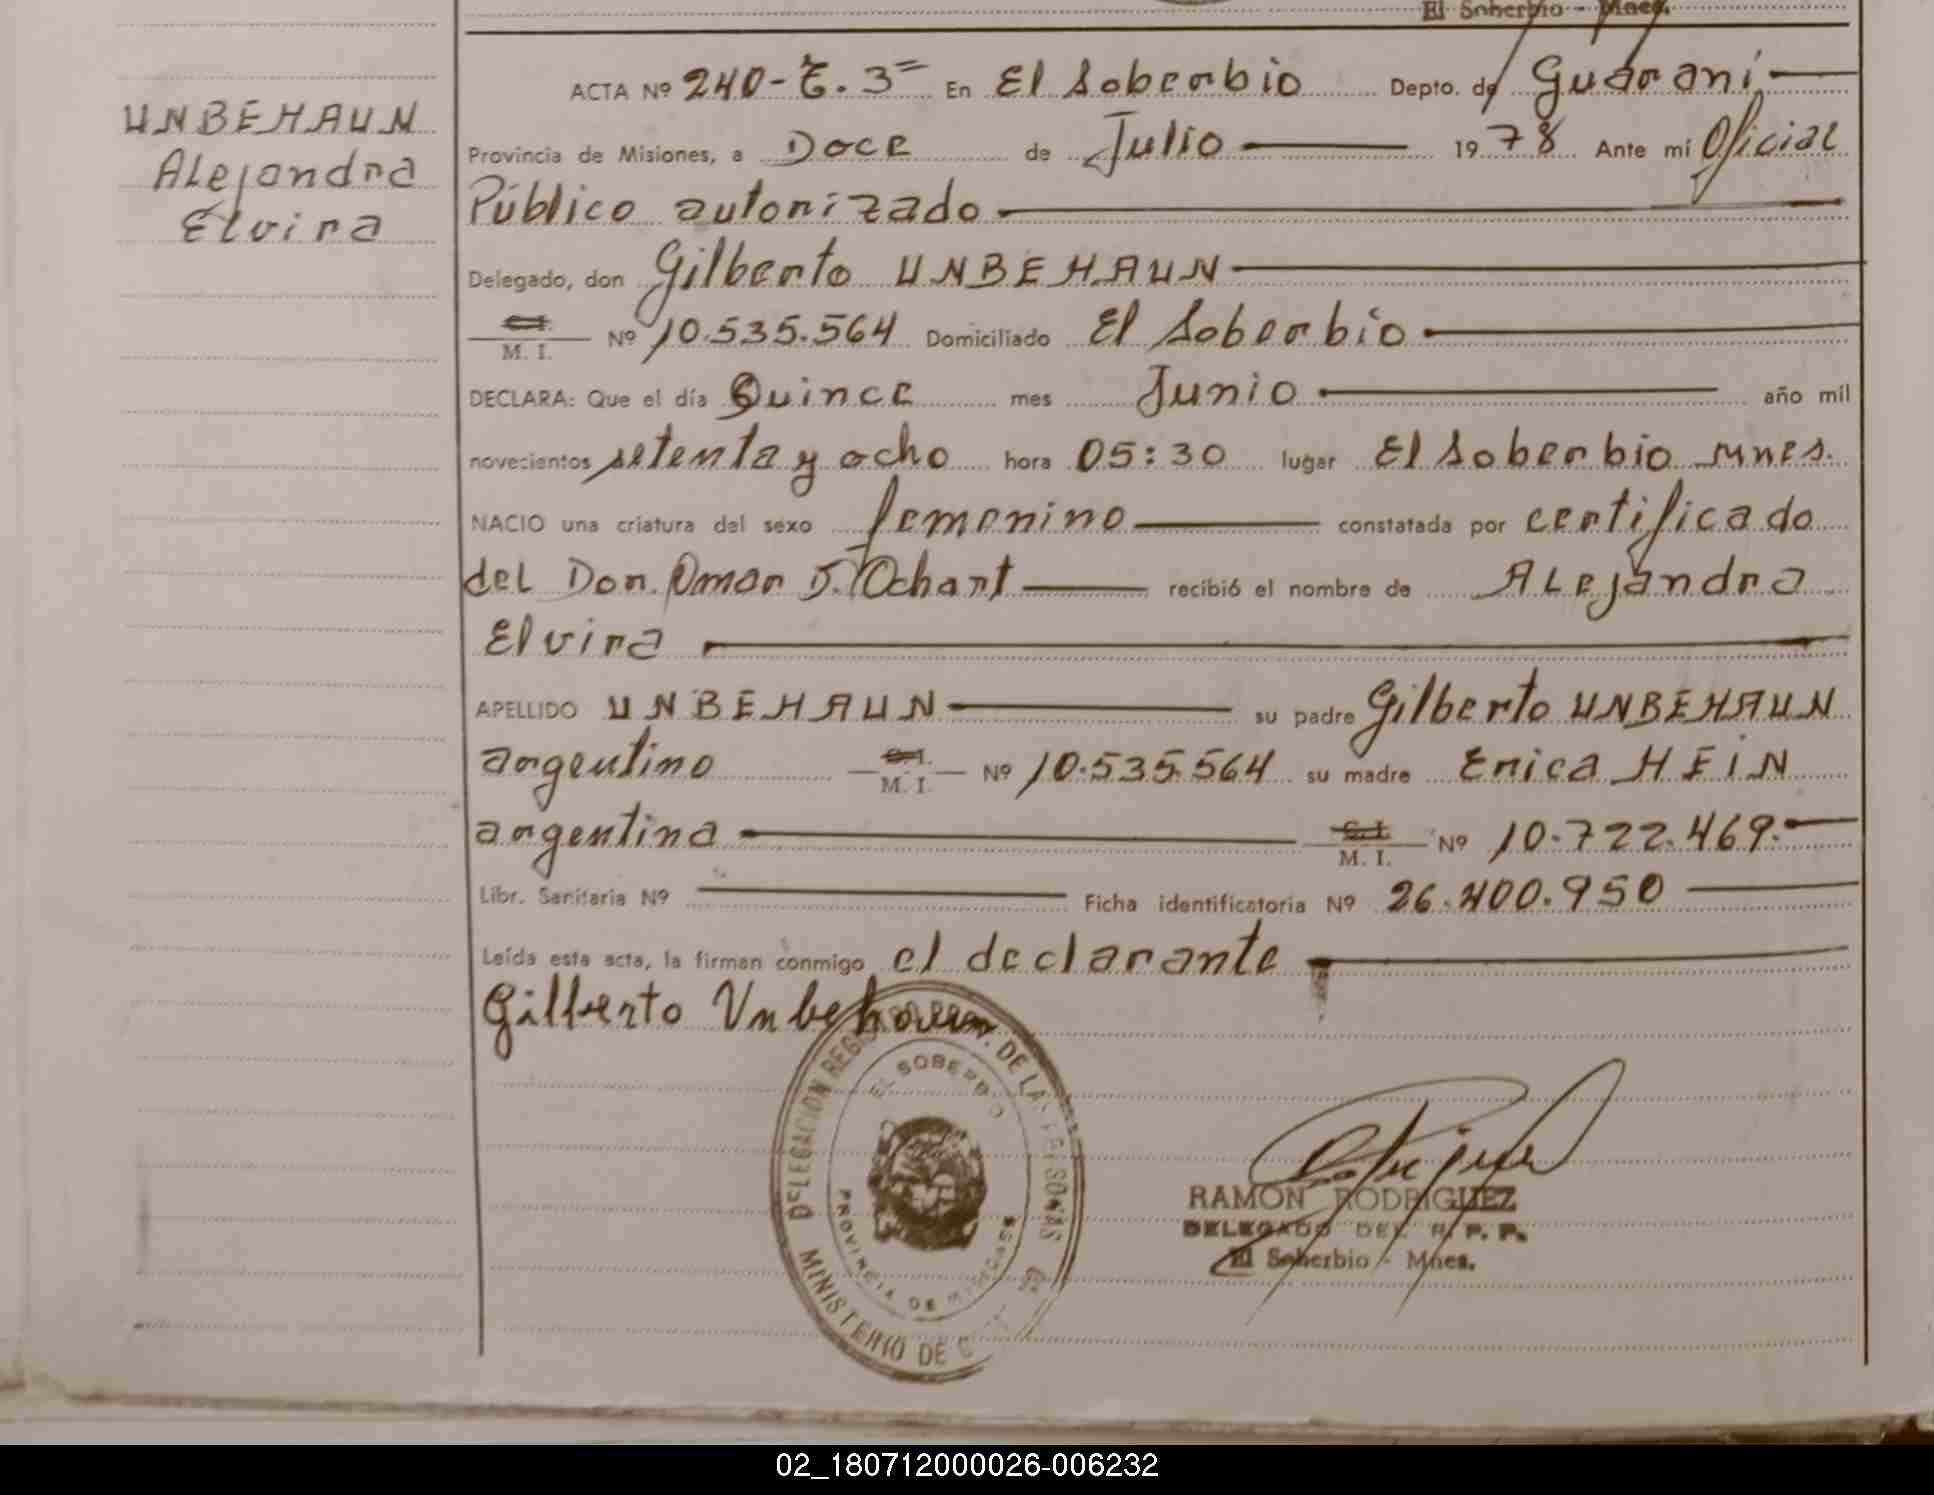 El Soberbio - Mnes.
UNBEHAUN
Alejandra
Elvira
ACTA Nº 240-T. 3= En El Soberbio Depto. de Guaraní
Provincia de Misiones, a Doce de Julio 1978 Ante mí Oficial
Público autorizado
Delegado, don Gilberto UNBEHAUN
C.I. M. I. Nº 10.535.564 Domiciliado El Soberbio
DECLARA: Que el día Quince mes Junio año mil
novecientos setenta y ocho hora 05:30 lugar El Soberbio Mnes.
NACIO una criatura del sexo femenino constatada por certificado
del Don. Omar J. Ochart recibió el nombre de Alejandra
Elvira
APELLIDO UNBEHAUN su padre Gilberto UNBEHAUN
argentino C.I. M. I. Nº 10.535.564 su madre Erica HEIN
argentina C.I. M. I. Nº 10.722.469.
Libr. Sanitaria Nº Ficha identificatoria Nº 26.400.950
Leída esta acta, la firman conmigo el declarante
Gilberto Unbehaun
DELEGACION REGISTRO DE LAS PERSONAS
EL SOBERBIO
PROVINCIA DE MISIONES
MINISTERIO DE
RAMON RODRIGUEZ
DELEGADO DEL R. P. P.
El Soberbio - Mnes.
02_180712000026-006232